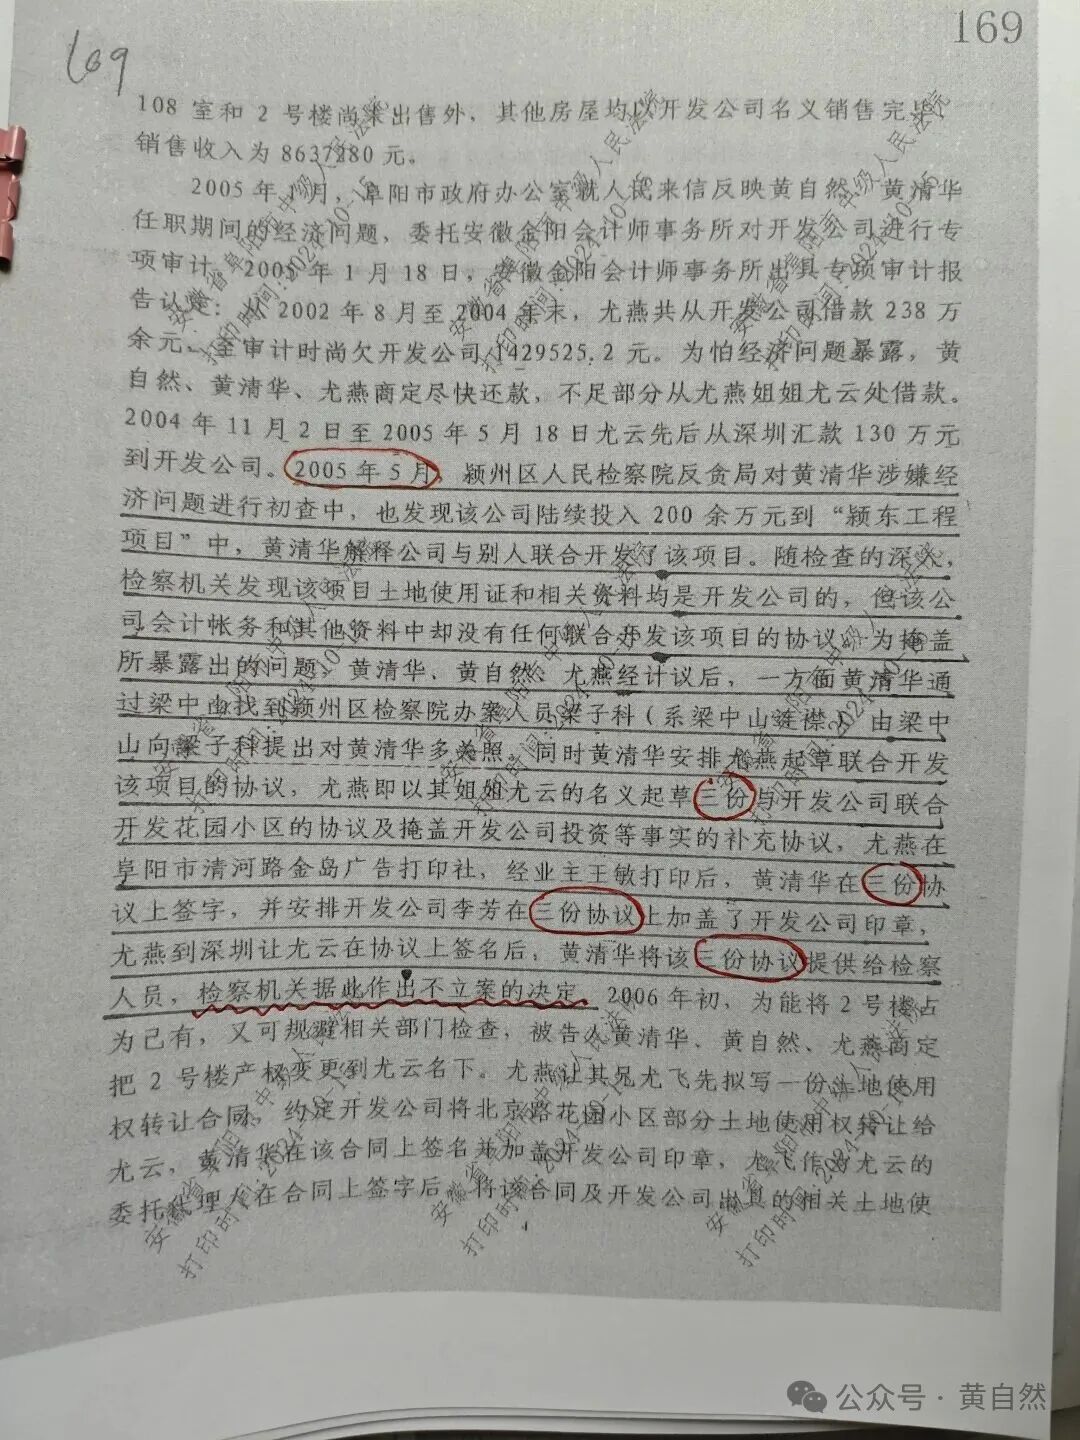 169
169
108 室和 2 号楼尚未出售外，其他房屋均以开发公司名义销售完毕，
销售收入为 8637280 元。
2005 年 1 月，阜阳市政府办公室就人民来信反映黄自然、黄清华
任职期间的经济问题，委托安徽金阳会计师事务所对开发公司进行专
项审计。2005 年 1 月 18 日，安徽金阳会计师事务所出具专项审计报
告认定：从 2002 年 8 月至 2004 年末，尤燕共从开发公司借款 238 万
余元，至审计时尚欠开发公司 1429525.2 元。为怕经济问题暴露，黄
自然、黄清华、尤燕商定尽快还款，不足部分从尤燕姐姐尤云处借款。
2004 年 11 月 2 日至 2005 年 5 月 18 日尤云先后从深圳汇款 130 万元
到开发公司。2005 年 5 月，颍州区人民检察院反贪局对黄清华涉嫌经
济问题进行初查中，也发现该公司陆续投入 200 余万元到“颍东工程
项目”中，黄清华解释公司与别人联合开发了该项目。随检查的深入，
检察机关发现该项目土地使用证和相关资料均是开发公司的，但该公
司会计帐务和其他资料中却没有任何联合开发该项目的协议。为掩盖
所暴露出的问题，黄清华、黄自然、尤燕经计议后，一方面黄清华通
过梁中山找到颍州区检察院办案人员梁子科（系梁中山连襟），由梁中
山向梁子科提出对黄清华多关照。同时黄清华安排尤燕起草联合开发
该项目的协议，尤燕即以其姐姐尤云的名义起草三份与开发公司联合
开发花园小区的协议及掩盖开发公司投资等事实的补充协议，尤燕在
阜阳市清河路金岛广告打印社，经业主王敏打印后，黄清华在三份协
议上签字，并安排开发公司李芳在三份协议上加盖了开发公司印章，
尤燕到深圳让尤云在协议上签名后，黄清华将该三份协议提供给检察
人员，检察机关据此作出不立案的决定。2006 年初，为能将 2 号楼占
为己有，又可规避相关部门检查，被告人黄清华、黄自然、尤燕商定
把 2 号楼产权变更到尤云名下。尤燕让其兄尤飞先拟写一份土地使用
权转让合同，约定开发公司将北京路花园小区部分土地使用权转让给
尤云，黄清华在该合同上签名并加盖开发公司印章，尤飞作为尤云的
委托代理人在合同上签字后，将该合同及开发公司出具的相关土地使
公众号·黄自然